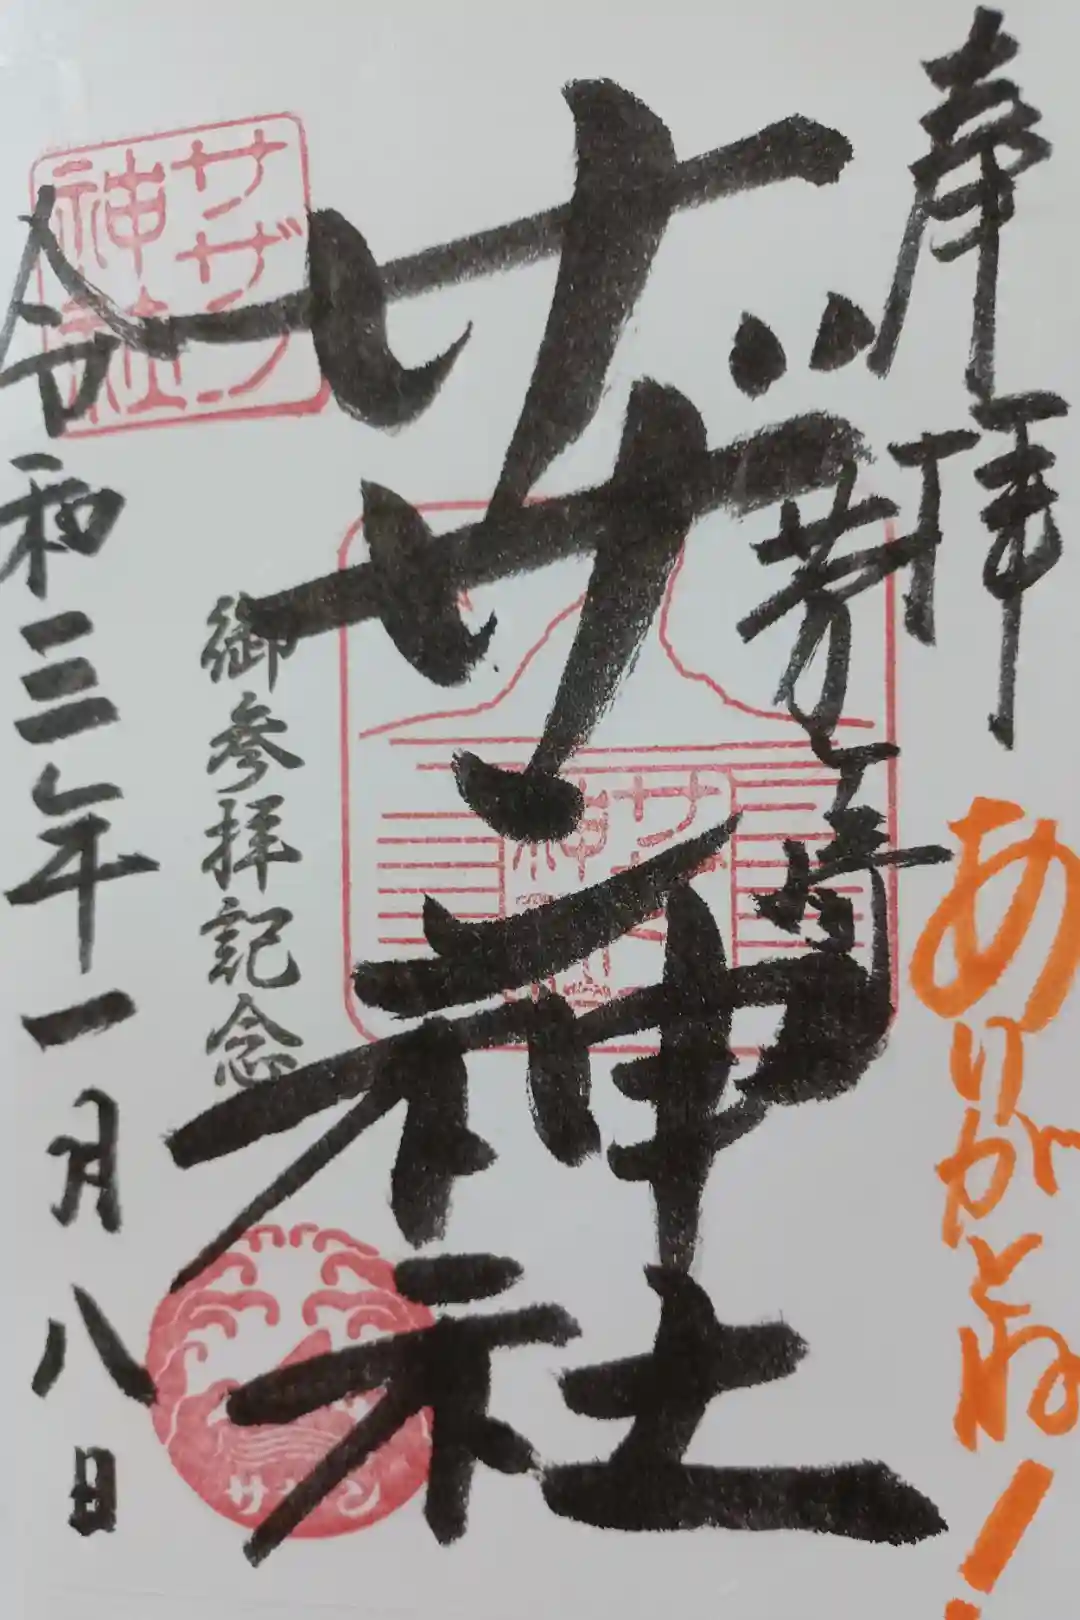 奉拝
ありがとね!
茅ヶ崎
サザン神社
サザン
神社
サザン
御参拝記念
令和三年一月八日
サザン
神社